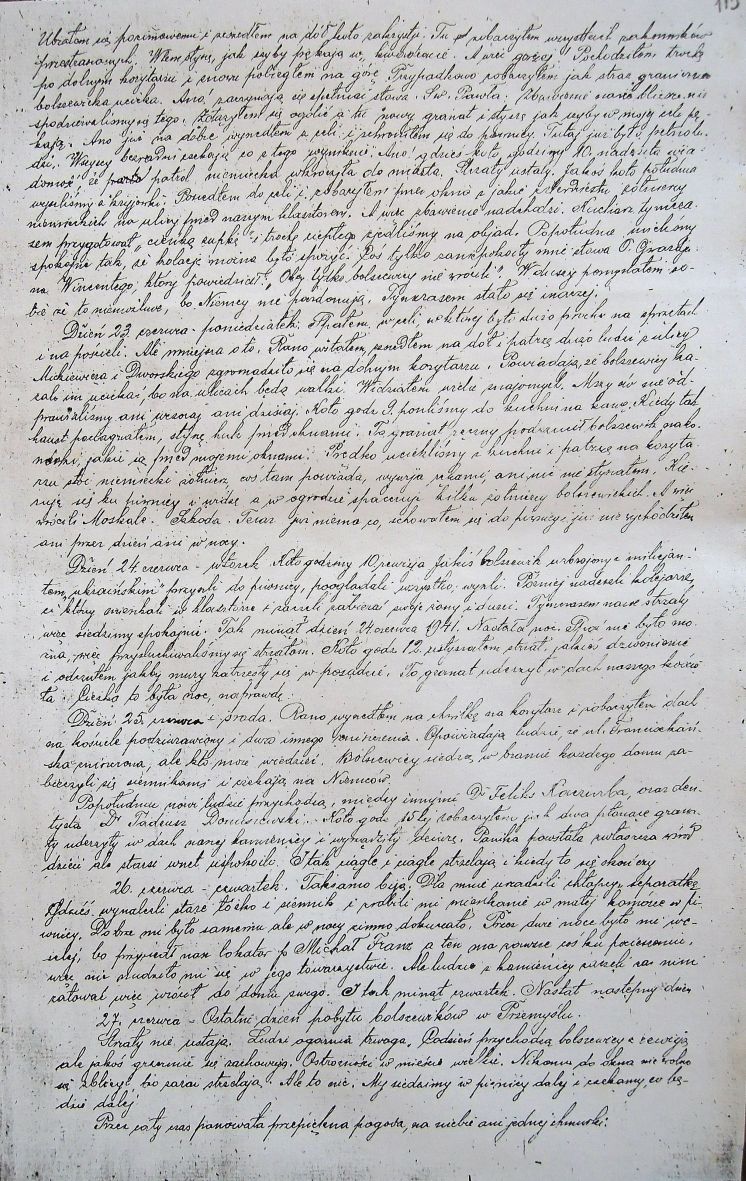 115
Ubrałem się pozimowemu i zszedłem na dół koło zakrystji. Tu zobaczyłem wszystkich zakonników
przestraszonych. Wtem słyszę, jak szyby pękają w kwadracie. A więc gorzej! Pochodziłem trochę
po dolnym korytarzu i znowu pobiegłem na górę. Przypadkowo zobaczyłem jak straż graniczna
bolszewicka ucieka. Ano, zaczynają się spełniać słowa Św. Pawła: zbawienie nasze bliższe niż
spodziewaliśmy się tego. Zdążyłem się ogolić a tu nowy granat i słyszę jak szyby w mojej celi pę-
kają. Ano już na dobre wyszedłem z celi i schroniłem się do piwnicy. Tutaj już było pełno lu-
dzi. Wszyscy bezradni czekają co z tego wyniknie. Ano, gdzieś koło godziny 10, nadeszła wia-
domość że patrol niemiecka wkroczyła do miasta. Strzały ustały. Jakoś koło południa
wyszliśmy z kryjówki. Poszedłem do celi i zobaczyłem przez okno z jakie żołnierzy
niemieckich na ulicy przed naszym klasztorem. A więc zbawienie nadchodzi. Kucharz tymcza-
sem przygotował "cienką zupkę" i trochę ciepłego zjedliśmy na objad. Popołudniu mieliśmy
spokojnie tak, że kolację można było spożyć. Coś tylko zaniepokoiły mnie słowa O. 
na Wincentego, który powiedział: "Oby tylko bolszewicy nie wrócili". W duszy pomyślałem so-
bie że to niemożliwe, bo Niemcy nie pardonują. Tymczasem stało się inaczej.
Dzień 23 czerwca - poniedziałek. Spałem w celi, w której było dużo prochu na sprzętach
i na pościeli. Ale mniejsza o to. Rano wstałem, zszedłem na dół i patrzę dużo ludzi z ulicy
Mickiewicza i Dworskiego zgromadziło się na dolnym korytarzu. Powiadają, że bolszewicy ka-
zali im uciekać, bo na ulicach będą walki. Widziałem wielu znajomych. Mszy św. nie od-
prawialiśmy ani wczoraj ani dzisiaj. Koło godz. 9. poszliśmy do kuchni na kawę. Kiedy tak
 słyszę huk przed oknami. To granat ręczny podrzucił bolszewik 
 jakie są przed naszemi oknami. Prędko uciekliśmy z kuchni i patrzę na koryta-
rzu stoi niemiecki żołnierz, coś tam powiada, wywija rękami, ani nic nie słyszałem. Kie-
ruję się ku piwnicy i widzę a w ogrodzie spaceruje kilku żołnierzy bolszewickich. A więc
wrócili Moskale. Szkoda. Teraz już niema co, schowałem się do piwnicy i już nie wychodziłem
ani przez dzień ani w nocy.
Dzień 24 czerwca - wtorek. Koło godziny 10, rewizja. Jakiś bolszewik uzbrojony z milicjan-
tem "ukraińskim" przyszli do piwnicy, pooglądali wszystko, wyszli. Później nadeszli kolejarze,
ci którzy mieszkali w klasztorze i zaczęli zabierać swoje żony i dzieci. Tymczasem nowe strzały
więc siedzimy spokojnie. Tak minął dzień 24 czerwca 1941. Nastała noc. Spać nie było mo-
żna, więc przysłuchiwaliśmy się strzałom. Koło godz. 12. usłyszałem strzał, jakieś dzwonienie
i odczułem jakby mury zatrzęsły się w posadzie. To granat uderzył w dach naszego kościo-
ła. Ciężka to była noc, naprawdę.
Dzień 25 czerwca - środa. Rano wyszedłem na chwilkę na korytarz i zobaczyłem dach
na kościele podziurawiony i dużo innego zniszczenia. Opowiadają ludzie, że ul. Franciszkań-
ska zniszczona, ale kto może wiedzieć. Bolszewicy siedzą w bramie każdego domu za-
bezpieczyli się siennikami i czekają na Niemców.
Popołudniu nowi ludzie przychodzą, między innymi Dr Feliks oraz den-
tysta Dr Tadeusz Doniszewski. Koło godz. 15 tej zobaczyłem jak dwa płonące grana-
ty uderzyły w dach naszej kamienicy i wyrządziły dziurę. Panika powstała zwłaszcza wśród
dzieci ale starsi wnet uspokoili. I tak ciągle i ciągle strzelają i kiedy to się skończy
26. czerwca - czwartek. Taksamo biją. Dla mnie urządzili chłopcy "separatkę"
Gdzieś wynaleźli stare łóżko i siennik i zrobili mi mieszkanie w małej komórce w pi-
wnicy. Dobrze mi było samemu ale w nocy zimno dokuczało. Przez dwie noce było mi we-
selej, bo przyszedł nasz lokator p. Michał Franz a ten ma zawsze coś ku pocieszeniu,
więc nie nudziło mi się w jego towarzystwie. Ale ludzie z kamienicy zaczęli za nim
 więc wrócił do domu swego. I tak minął czwartek. Nastał następny dzień
27. czerwca - Ostatni dzień pobytu bolszewików w Przemyślu.
Strzały nie ustają. Ludzi ogarnia trwoga. Codzień przychodzą bolszewicy z rewizją
ale jakoś grzecznie się zachowują. Ostrożności w mieście wielkie. Nikomu do okna nie wolno
się zbliżyć bo zaraz strzelają. Ale to nic. My siedzimy w piwnicy dalej i czekamy, co bę-
dzie dalej
Przez cały czas panowała przepiękna pogoda, na niebie ani jednej chmurki.